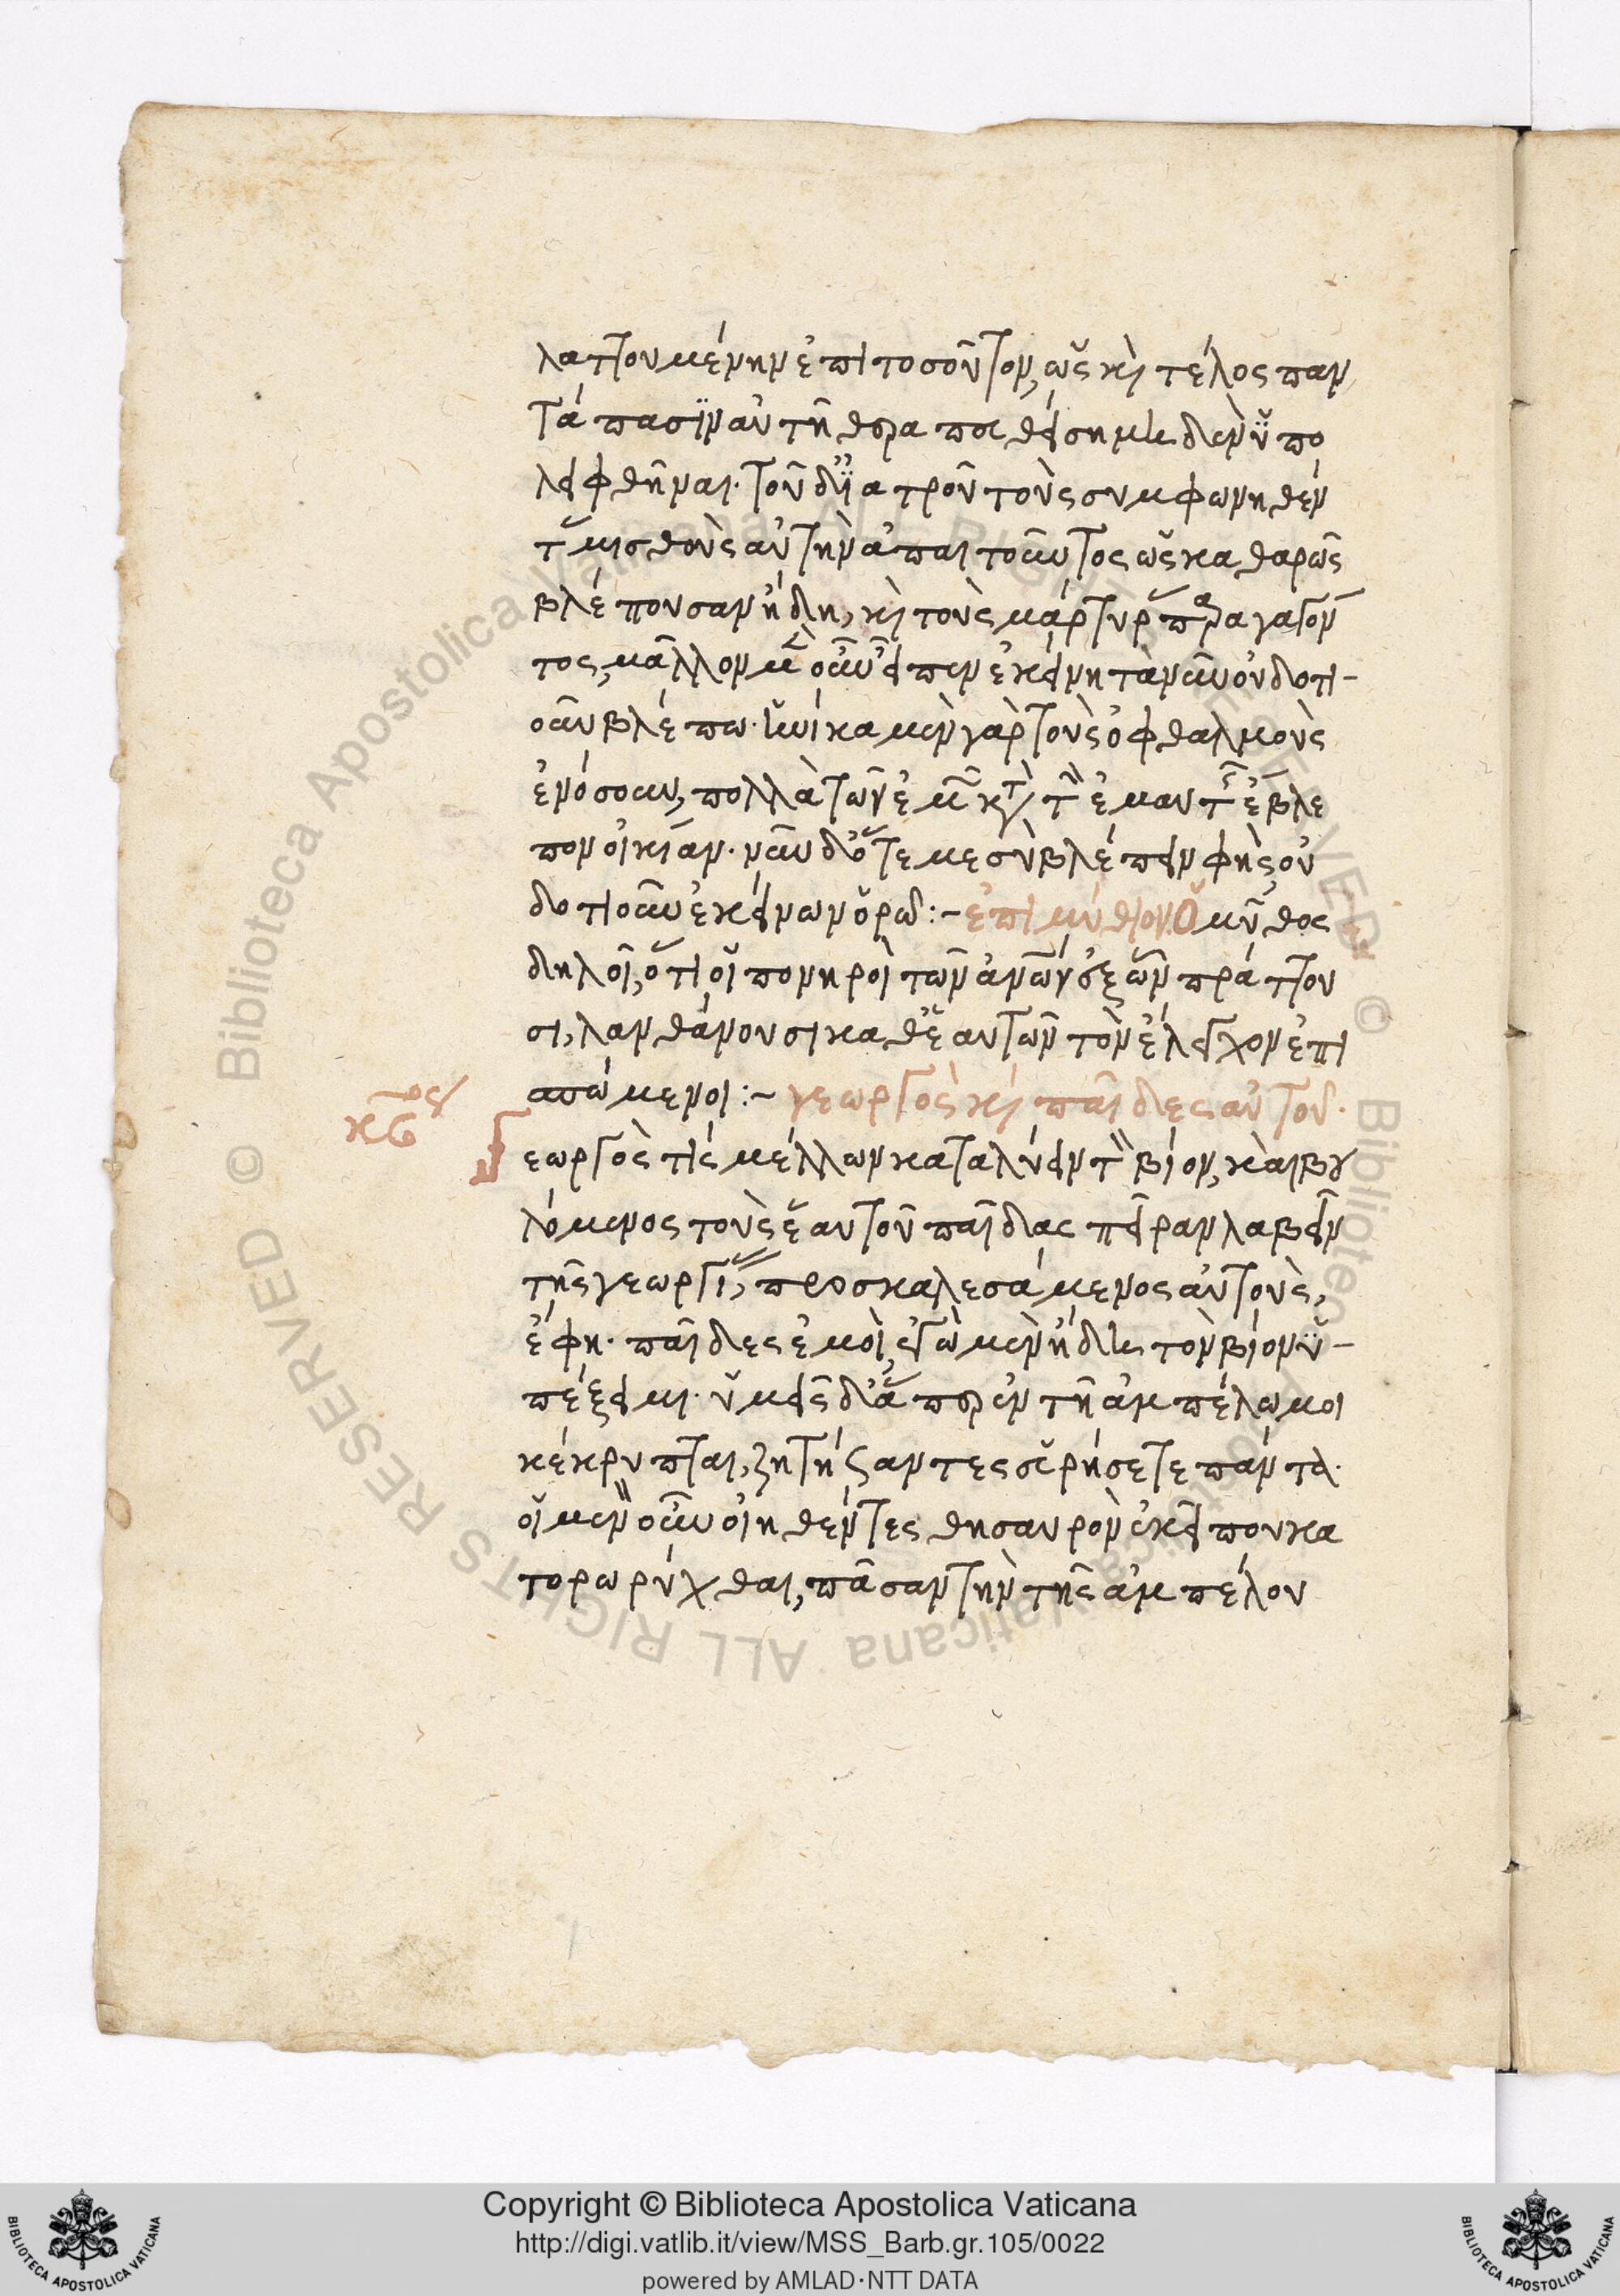 λαττουμένην ἐπὶ τοσοῦτον, ὡς καὶ τέλος παν
τάπασιν αὐτῇ θεραπευθείσῃ μηδὲν ὑπο
λειφθῆναι. τοῦ δ' ἰατροῦ τοὺς συμφωνηθέν
τας μισθοὺς αὐτὴν ἀπαιτοῦντος ὡς καθαρῶς
βλέπουσαν ἤδη, καὶ τοὺς μάρτυρας παραγαγόν
τος, μᾶλλον μὲν οὖν εἶπεν ἐκείνη τανῦν οὐδοτι-
οῦν βλέπω. ἡνίκα μὲν γὰρ τοὺς ὀφθαλμοὺς
ἐνόσουν, πολλὰ τῶν ἐμῶν κατὰ τὴν ἐμαυτῆς ἔβλε
πον οἰκίαν. νῦν δ' ὅτε με σὺ βλέπειν φῂς οὐ
δοτιοῦν ἐκείνων ὁρῶ :- ἐπιμύθιον Ὁ μῦθος
δηλοῖ, ὅτι οἱ πονηροὶ τῶν ἀνῶν ἐξ ὧν πράττου
σι, λανθάνουσι καθ' ἑαυτῶν τὸν ἔλεγχον ἐπι
σπώμενοι :- γεωργὸς καὶ παῖδες αὐτοῦ.
Γεωργός τις μέλλων καταλύειν τὸν βίον, καὶ βου
λόμενος τοὺς ἑαυτοῦ παῖδας πεῖραν λαβεῖν
τῆς γεωργίας, προσκαλεσάμενος αὐτοὺς,
ἔφη. παῖδες ἐμοὶ, ἐγὼ μὲν ἤδη τὸν βίον ὑ-
πέξειμι. ὑμεῖς δ' ἅπερ ἐν τῇ ἀμπέλω μοι
κέκρυπται, ζητήσαντες εὑρήσετε πάντα.
οἱ μὲν οὖν οἰηθέντες θησαυρὸν ἐκεῖ που κα
τορωρύχθαι, πᾶσαν τὴν τῆς ἀμπέλου
Copyright © Biblioteca Apostolica Vaticana
http://digi.vatlib.it/view/MSS_Barb.gr.105/0022
powered by AMLAD·NTT DATA